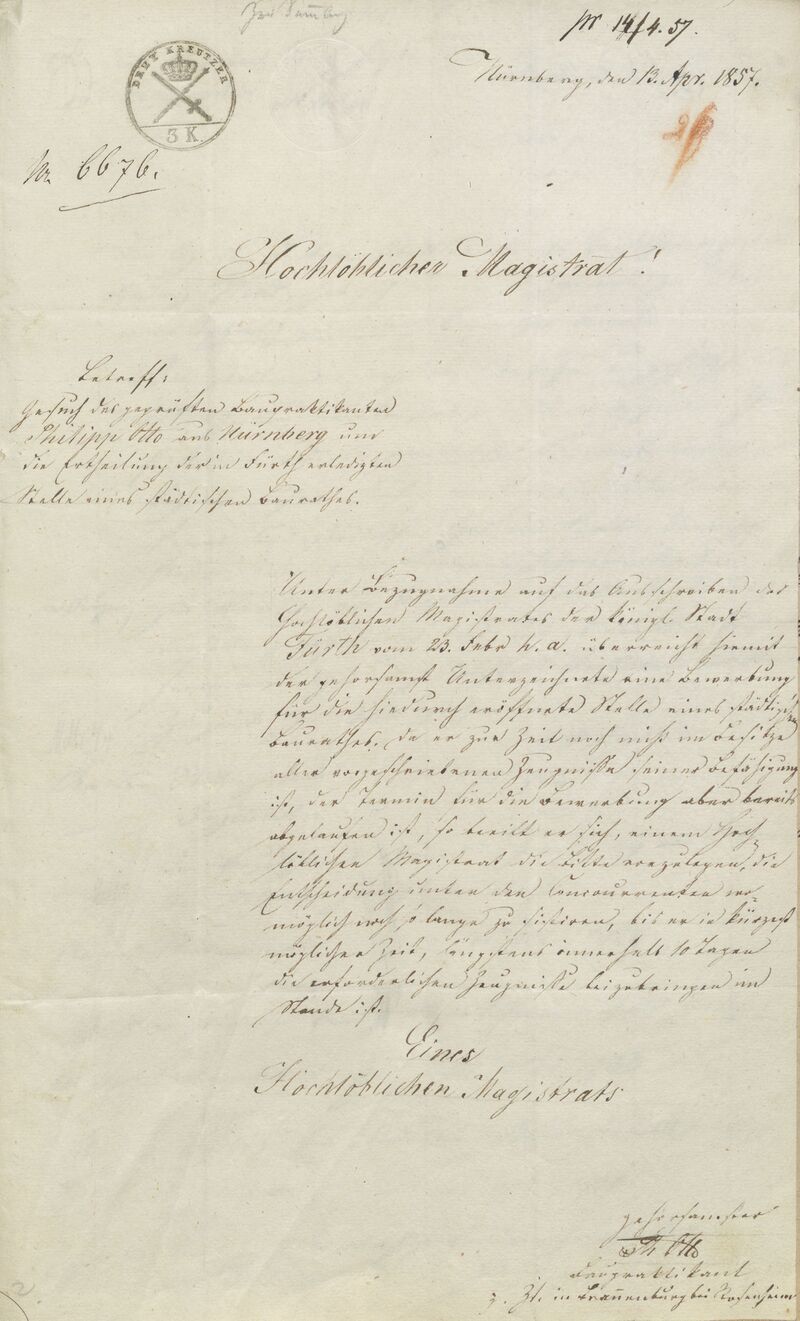 pr 14/4. 57.
Nürnberg, den 13. Apr. 1857.
DREY KREUTZER
3 K
Nr 6676.
Hochlöblicher Magistrat!
Betreff:
Gesuch des geprüften Baupraktikanten
Philipp Otto aus Nürnberg um
die Ertheilung der in Fürth erledigten
Stelle eines städtischen Baurathes.
Unter Bezugnahme auf das Ausschreiben des
Hochlöblichen Magistrates der königl. Stadt
Fürth vom 23. Febr h. a. überreicht hiemit
der gehorsamst Unterzeichnete eine Bewerbung
für die hiedurch eröffnete Stelle eines städtischen
Baurathes. Da er zur Zeit noch nicht im Besitze
aller vorgeschriebenen Zeugnisse seiner Befähigung
ist, der Termin für die Bewerbung aber bereits
abgelaufen ist, so beeilt er sich, einem Hoch-
löblichen Magistrat die Bitte vorzulegen, die
Entscheidung unter den Concurrenten wo-
möglich noch so lange zu sistiren, bis er in kürzest
möglicher Zeit, längstens innerhalb 10 Tagen
die erforderlichen Zeugnisse beizubringen im
Stande ist.
Eines
Hochlöblichen Magistrats
gehorsamster
Ph Otto
Baupraktikant
z. Zt. in Brannenburg bei Rosenheim
2